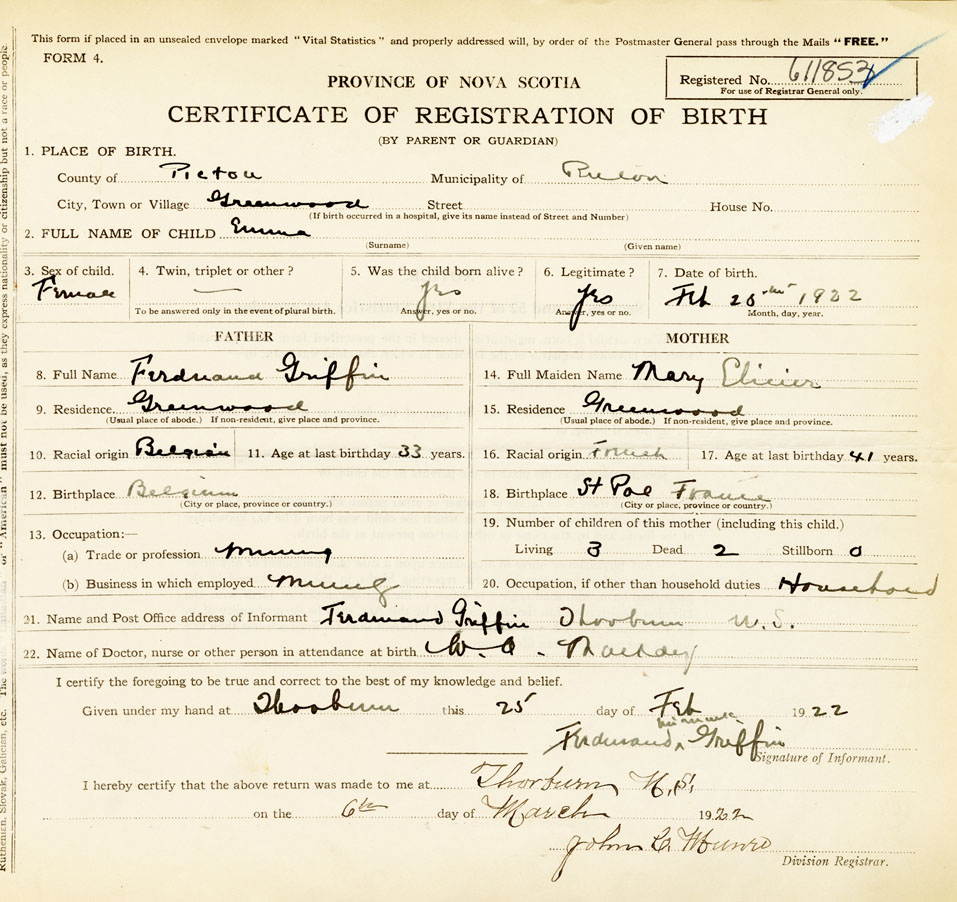 This form if placed in an unsealed envelope marked "Vital Statistics" and properly addressed will, by order of the Postmaster General pass through the Mails "FREE."
FORM 4.
Registered No. 611853
For use of Registrar General only.
PROVINCE OF NOVA SCOTIA
CERTIFICATE OF REGISTRATION OF BIRTH
(BY PARENT OR GUARDIAN)
1. PLACE OF BIRTH.
County of Pictou Municipality of Pictou
City, Town or Village Greenwood Street House No.
(If birth occurred in a hospital, give its name instead of Street and Number)
2. FULL NAME OF CHILD Emma
(Surname) (Given name)
3. Sex of child. 4. Twin, triplet or other? 5. Was the child born alive? 6. Legitimate? 7. Date of birth.
Female — yes yes Feb 1922
To be answered only in the event of plural birth. Answer, yes or no. Answer, yes or no. Month, day, year.
FATHER MOTHER
8. Full Name Ferdnand Griffin 14. Full Maiden Name Mary
9. Residence Greenwood 15. Residence Greenwood
(Usual place of abode.) If non-resident, give place and province. (Usual place of abode.) If non-resident, give place and province.
10. Racial origin Belgian 11. Age at last birthday 33 years. 16. Racial origin French 17. Age at last birthday 41 years.
12. Birthplace Belgium 18. Birthplace St Pol France
(City or place, province or country.) (City or place, province or country.)
19. Number of children of this mother (including this child.)
13. Occupation:—
(a) Trade or profession Mining Living 3 Dead 2 Stillborn 0
(b) Business in which employed Mining 20. Occupation, if other than household duties Household
21. Name and Post Office address of Informant Ferdinand Griffin Thorburn N.S.
22. Name of Doctor, nurse or other person in attendance at birth W. A.
I certify the foregoing to be true and correct to the best of my knowledge and belief.
Given under my hand at Thorburn this 25 day of Feb 1922
Ferdinand Griffin
Signature of Informant.
I hereby certify that the above return was made to me at Thorburn N.S.
on the 6th day of March 1922
John C. Munro
Division Registrar.
Ruthenian, Slovak, Galician, etc. The word "American" must not be used, as they express nationality or citizenship but not a race or people.